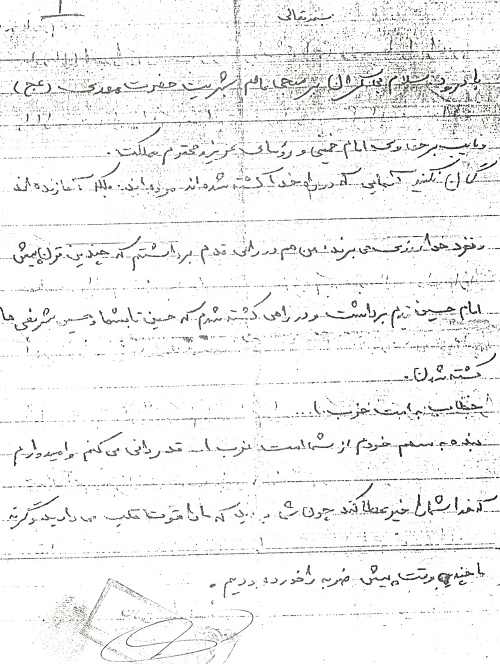 بسمه تعالی
با درود و سلام بیکران بر منجی عالم بشریت حضرت مهدی (عج)
و نایب بر حق اوی امام خمینی و رؤسای عزیز و محترم مملکت.
گمان نکنید کسانی که در راه خدا کشته شده‌اند مرده‌اند. بلکه آنها زنده‌اند
و نزد خدا روزی می‌برند. من هم در راهی قدم برداشتم که چندین قرن پیش
امام حسین قدم برداشت و در راهی کشته شدم که حسین شریفی ها
کشته شدن.
خطاب به امت حزب ا...
بنده به سهم خودم از شما امت حزب ا... قدردانی می‌کنم و امیدوارم
که خدا شما را خیر عطا کند چون شما که ما را قوت قلب می دارید وگرنه
ما چندین وقت پیش ضربه را خورده بودیم.